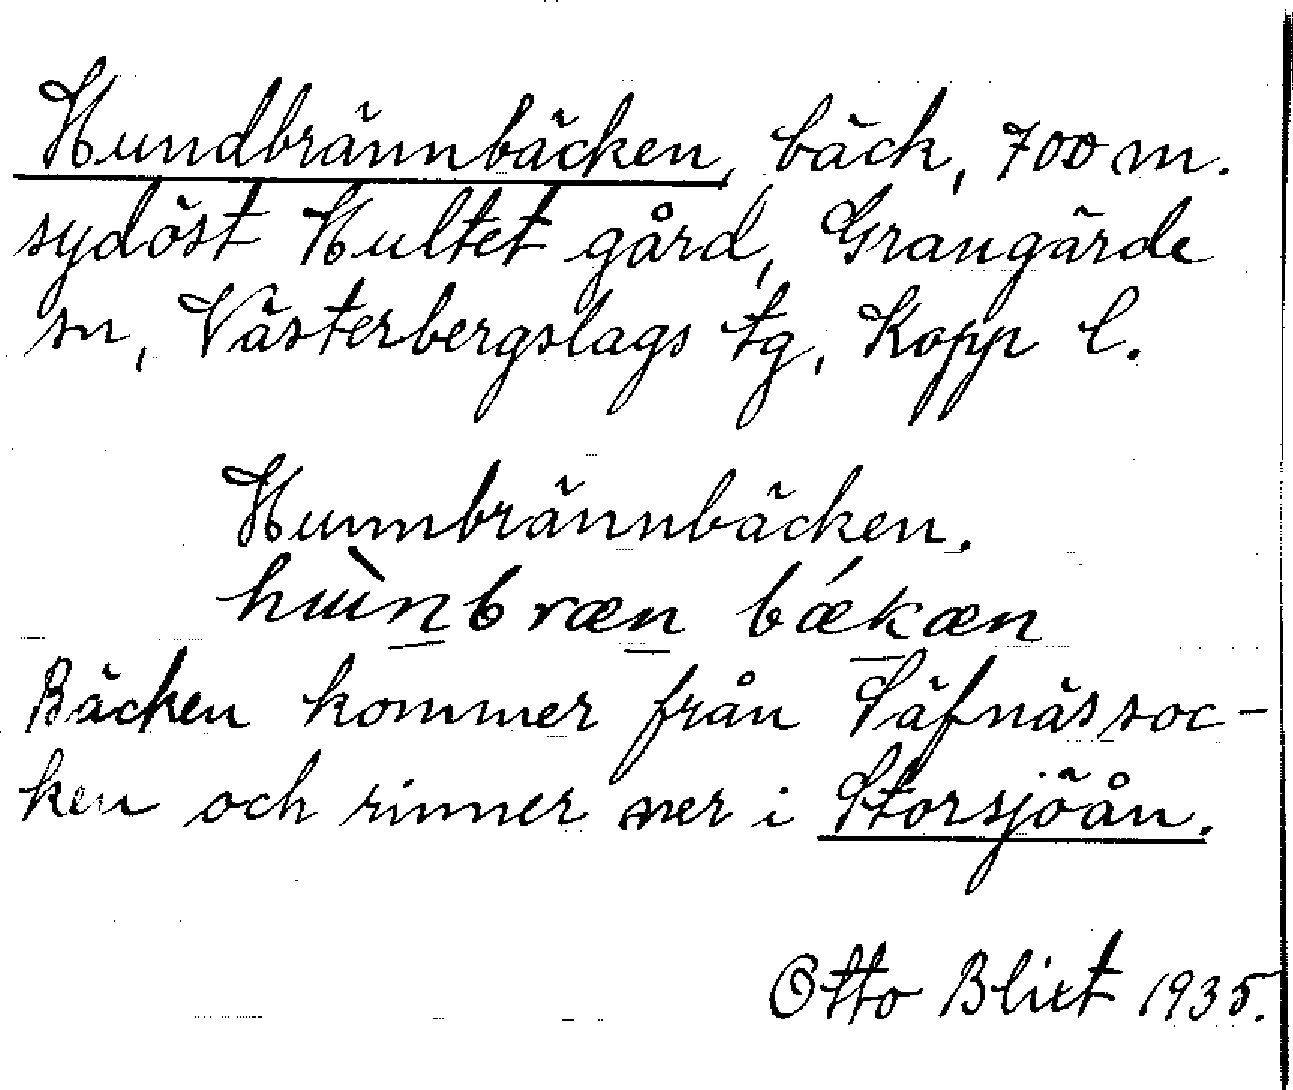 Hundbrännbäcken, bäck, 700 m.
sydöst Hultet gård, Grangärde
sn, Västerbergslags tg, Kopp l.
Hunnbrännbäcken.
hɯ̀nbræn bǽkæn
Bäcken kommer från Säfnässoc-
ken och rinner ner i Storsjöån.
Otto Blixt 1935.